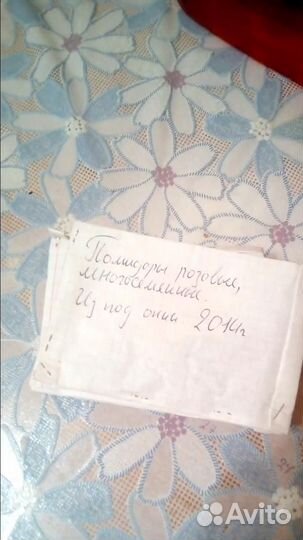 Помидоры розовые,
многосеменные.
Из под окна 2014г
Avito